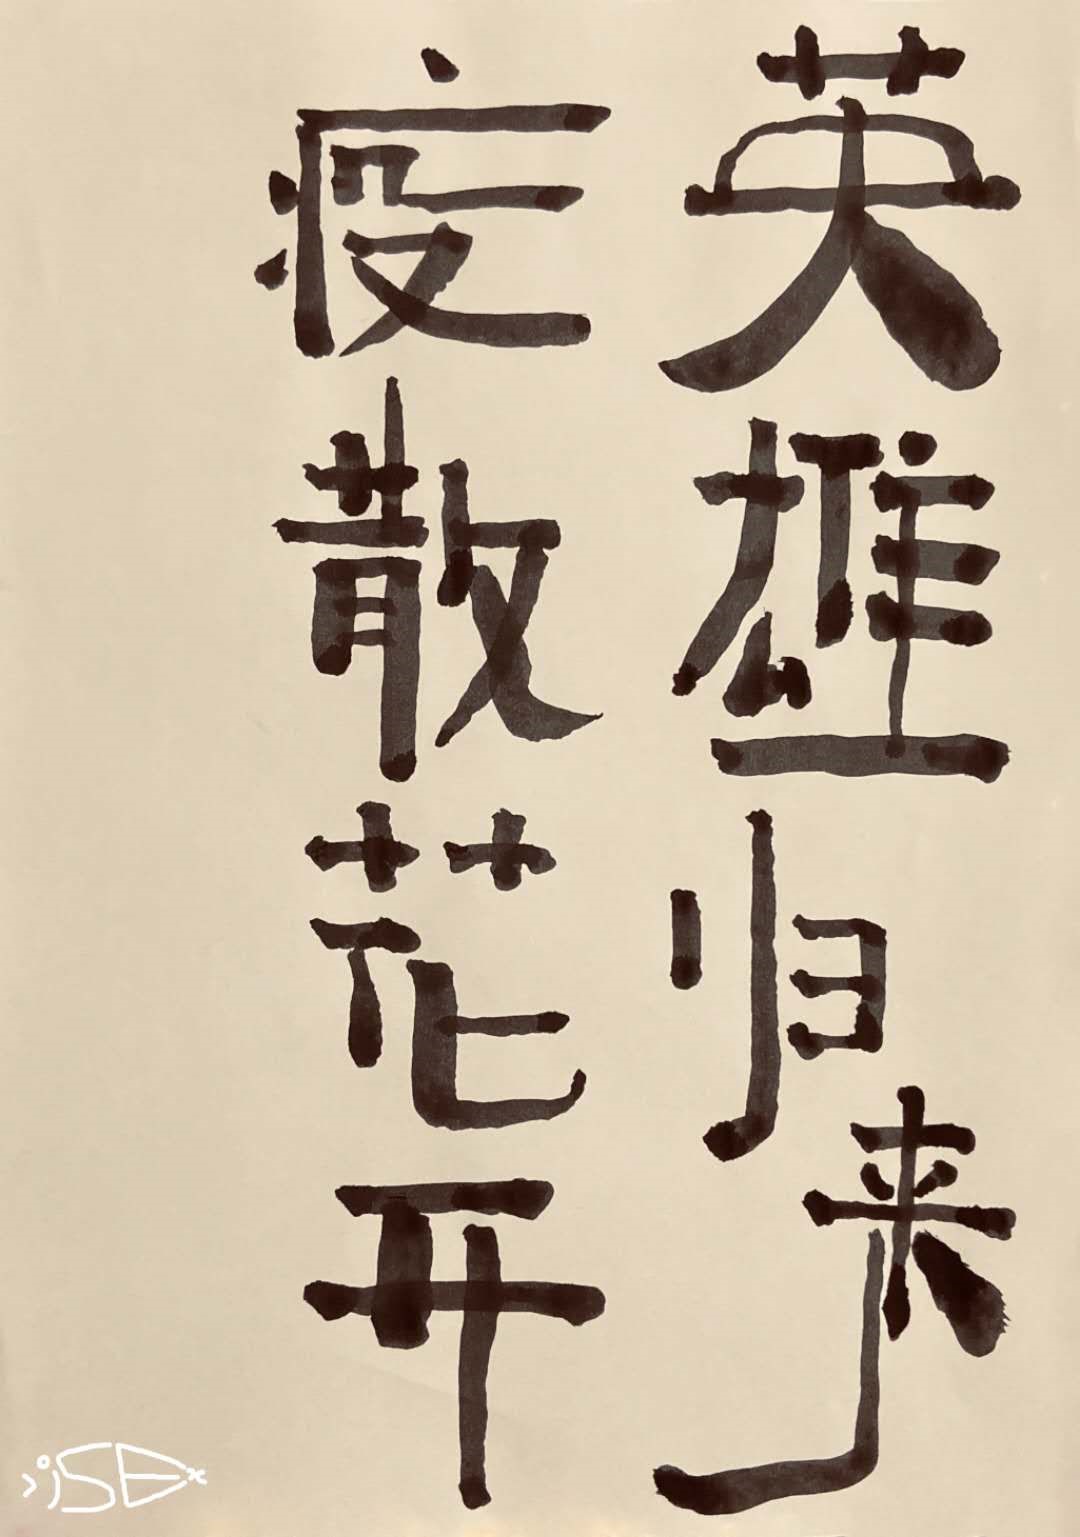 英雄归来
疫散花开